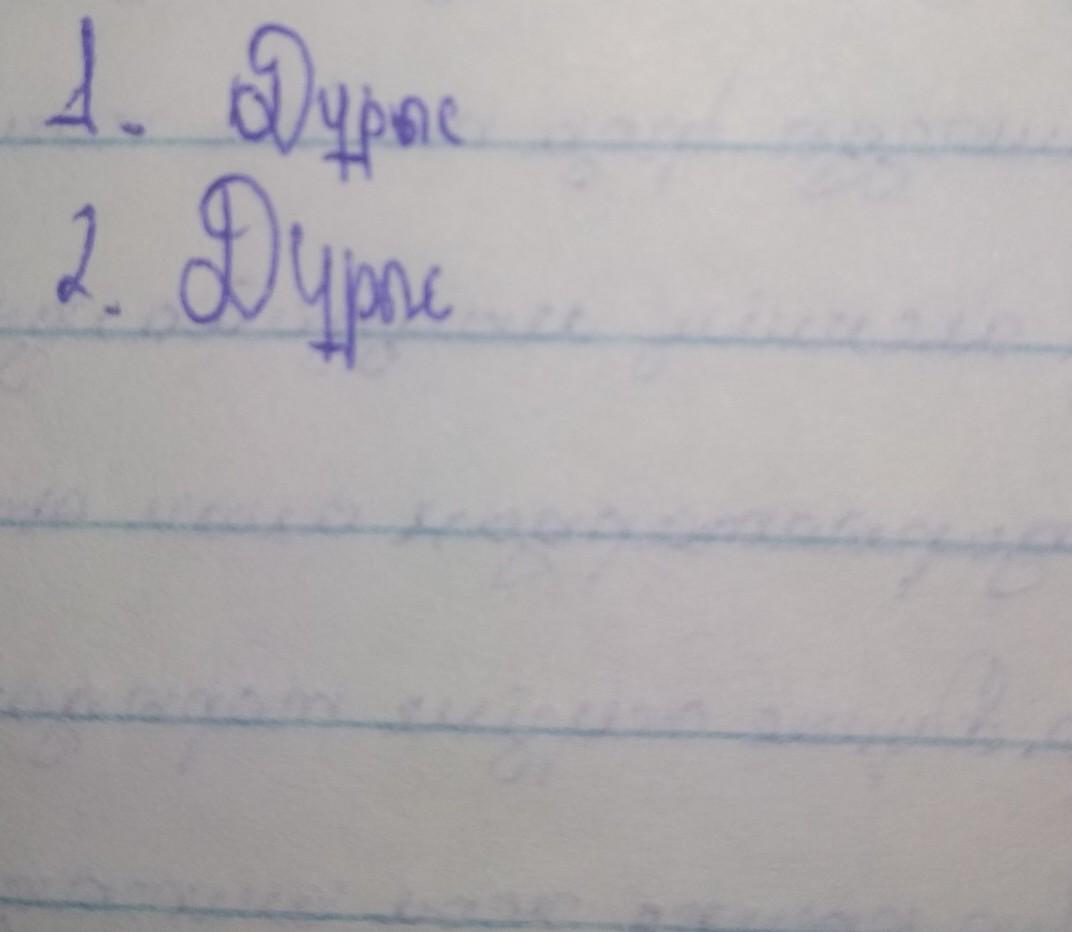 1. Дұрыс
2. Дұрыс